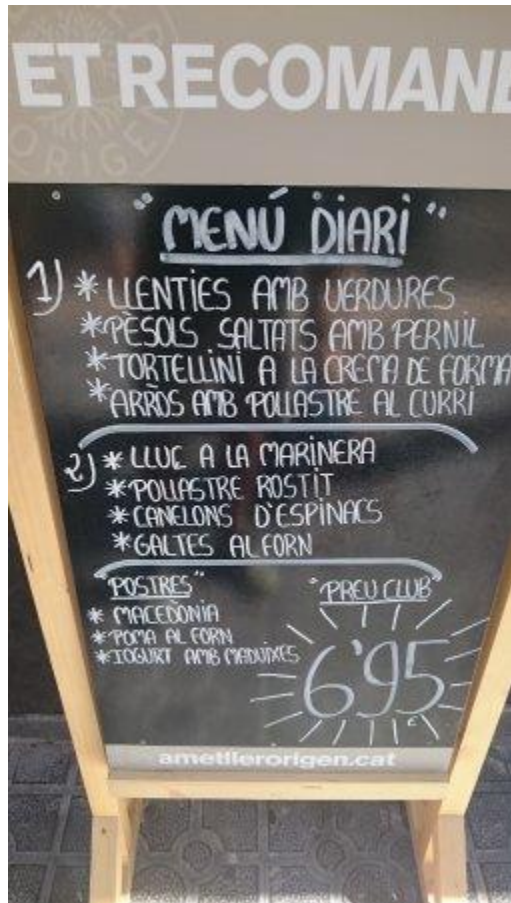 ET RECOMANE
ORIGEN
"MENÚ DIARI"
1) * LLENTIES AMB VERDURES
* PÈSOLS SALTATS AMB PERNIL
* TORTELLINI A LA CREMA DE FORMA
* ARRÒS AMB POLLASTRE AL CURRI
2) * LLUÇ A LA MARINERA
* POLLASTRE ROSTIT
* CANELONS D'ESPINACS
* GALTES AL FORN
"POSTRES"
* MACEDÒNIA
* POMA AL FORN
* IOGURT AMB MADUIXES
"PREU CLUB"
6'95 €
ametllerorigen.cat